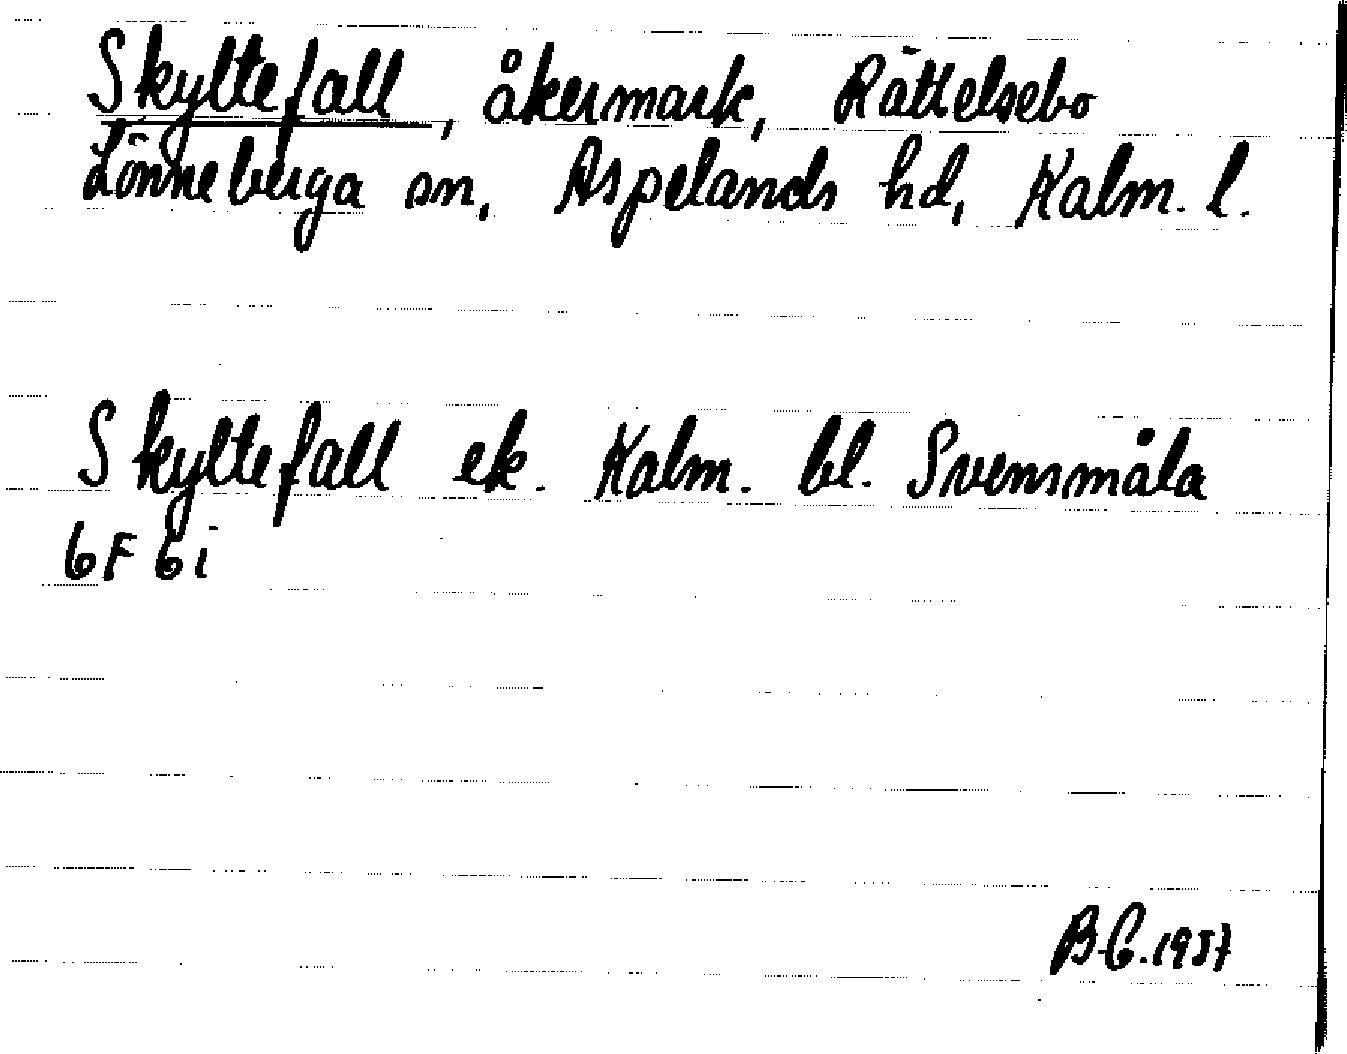 Skyltefall, åkermark, Rättelsebo
Lönneberga sn, Aspelands hd, Kalm. l.
Skyltefall ek. Kalm. bl. Svensmåla
6F 6i
B-C. 1937